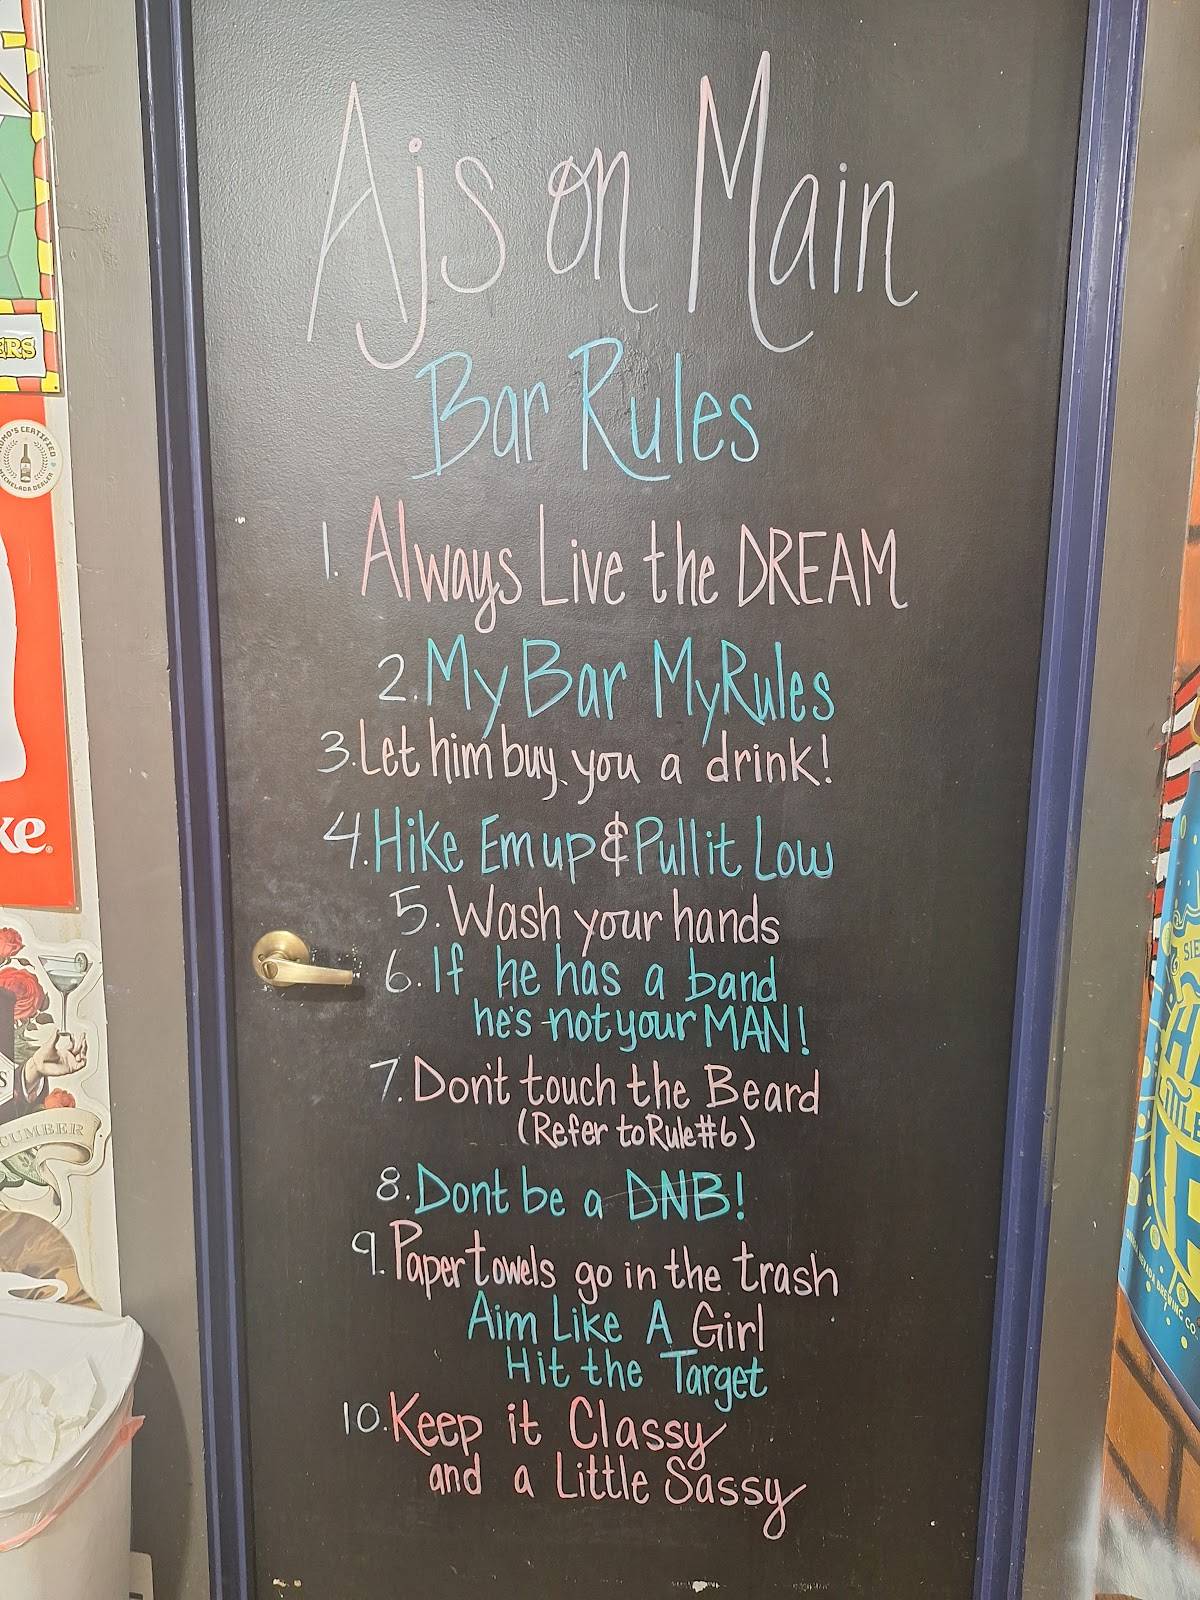 Ajs on Main
Bar Rules
1. Always Live the DREAM
2. My Bar My Rules
3. Let him buy you a drink!
4. Hike Em up & Pull it Low
5. Wash your hands
6. If he has a band
he's not your MAN!
7. Don't touch the Beard
(Refer to Rule #6)
8. Dont be a DNB!
9. Paper towels go in the trash
Aim Like A Girl
Hit the Target
10. Keep it Classy
and a Little Sassy
ERS
CERTIFIED
MICHELADA DEALER
ke
CUMBER
SIE